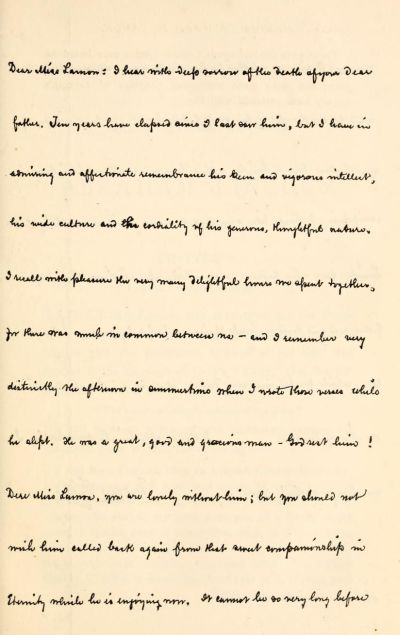 Dear Miss Lamon: I hear with deep sorrow of the death of your dear
father. Ten years have elapsed since I last saw him, but I have in
admiring and affectionate remembrance his keen and vigorous intellect,
his wide culture and the cordiality of his generous, thoughtful nature.
I recall with pleasure the very many delightful hours we spent together,
for there was much in common between us – and I remember very
distinctly the afternoon in summertime when I wrote those verses while
he slept. He was a great, good and gracious man – God rest him!
Dear Miss Lamon, you are lonely without him; but you should not
wish him called back again from that sweet companionship in
Eternity which he is enjoying now. It cannot be so very long before